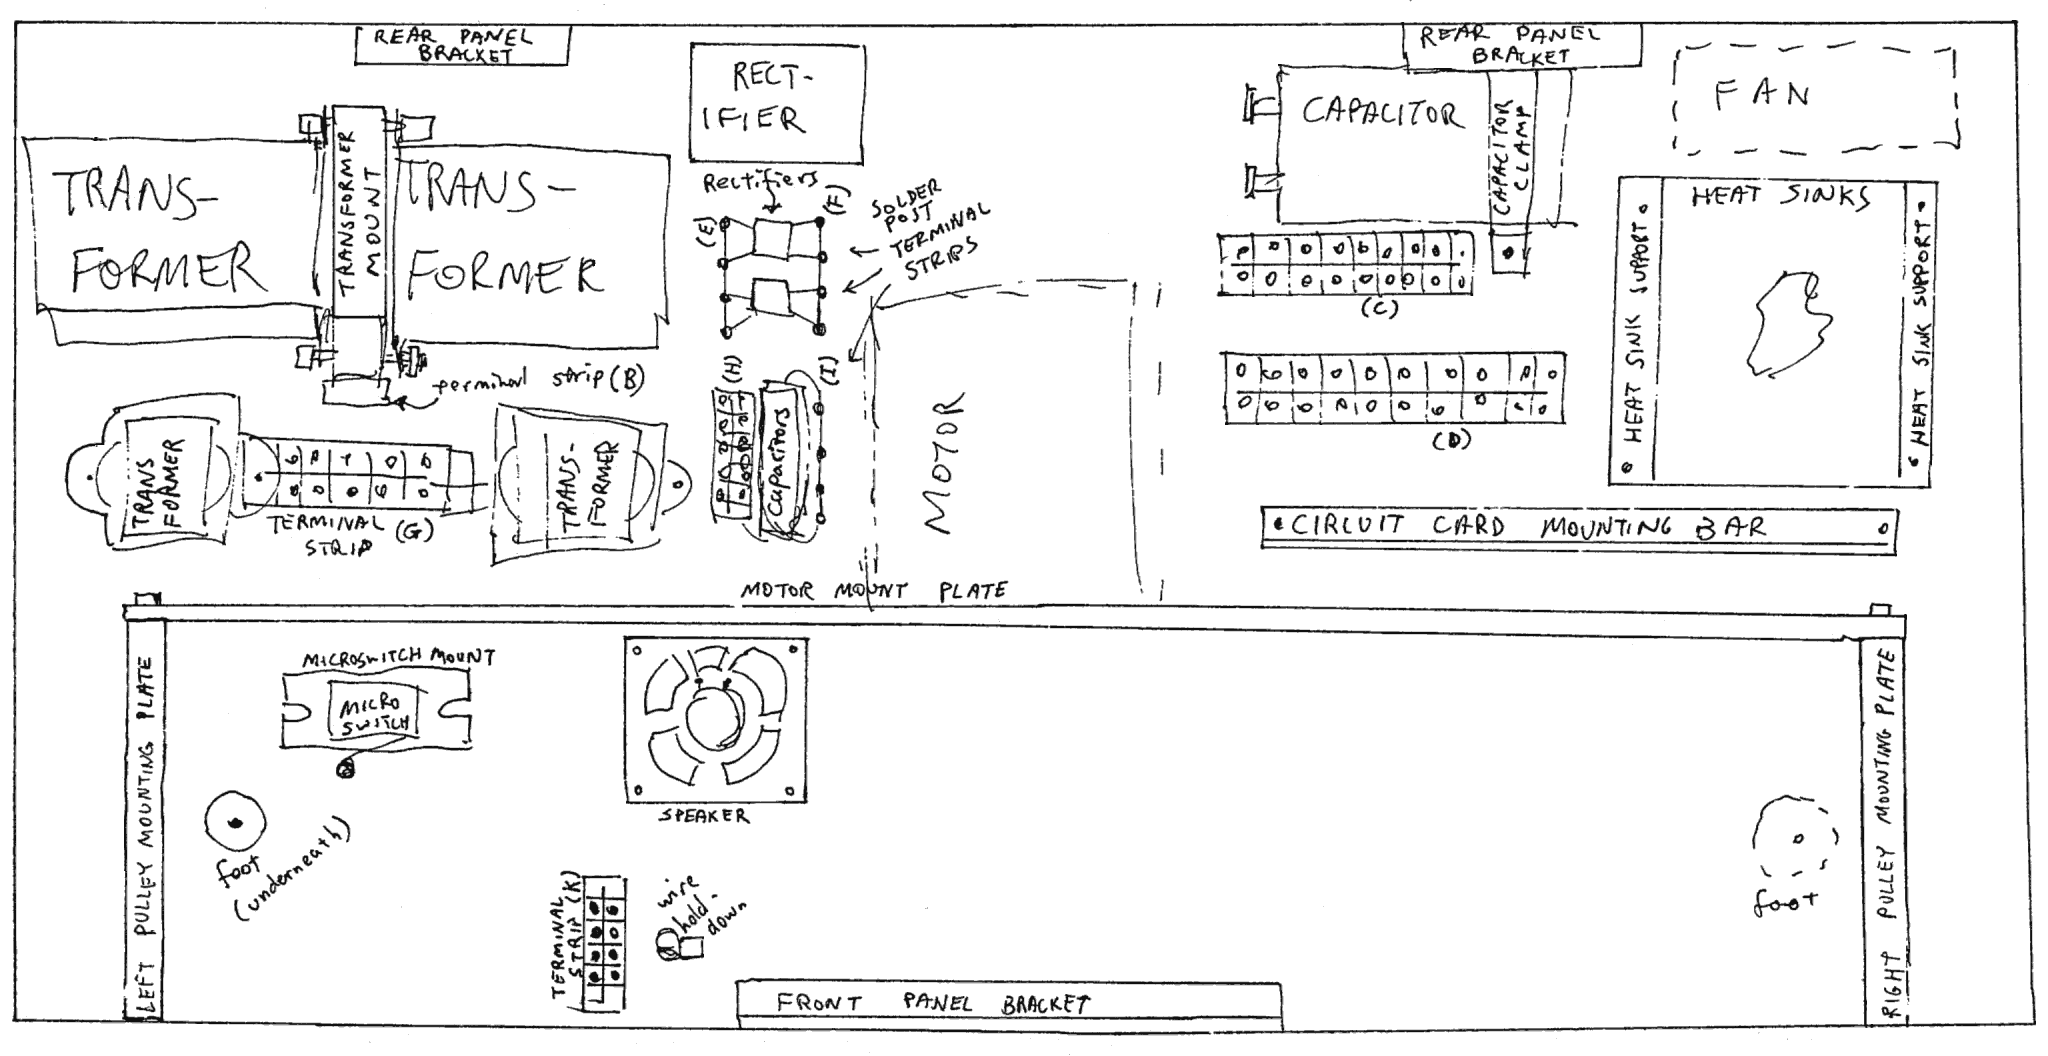 REAR PANEL
BRACKET
REAR PANEL
BRACKET
RECT-
IFIER
CAPACITOR
CAPACITOR
CLAMP
FAN
TRANS-
FORMER
TRANSFORMER
MOUNT
TRANS-
FORMER
Rectifiers
(E)
(F)
SOLDER
POST
TERMINAL
STRIPS
HEAT SINKS
HEAT SINK SUPPORT
HEAT SINK SUPPORT
(C)
terminal strip (B)
(H)
(I)
Capacitors
MOTOR
(D)
TRANS
FORMER
TERMINAL
STRIP
(G)
TRANS-
FORMER
CIRCUIT CARD MOUNTING BAR
MOTOR MOUNT PLATE
MICROSWITCH MOUNT
MICRO
SWITCH
SPEAKER
LEFT PULLEY MOUNTING PLATE
RIGHT PULLEY MOUNTING PLATE
foot
(underneath)
foot
TERMINAL
STRIP (K)
wire
hold-
down
FRONT PANEL BRACKET